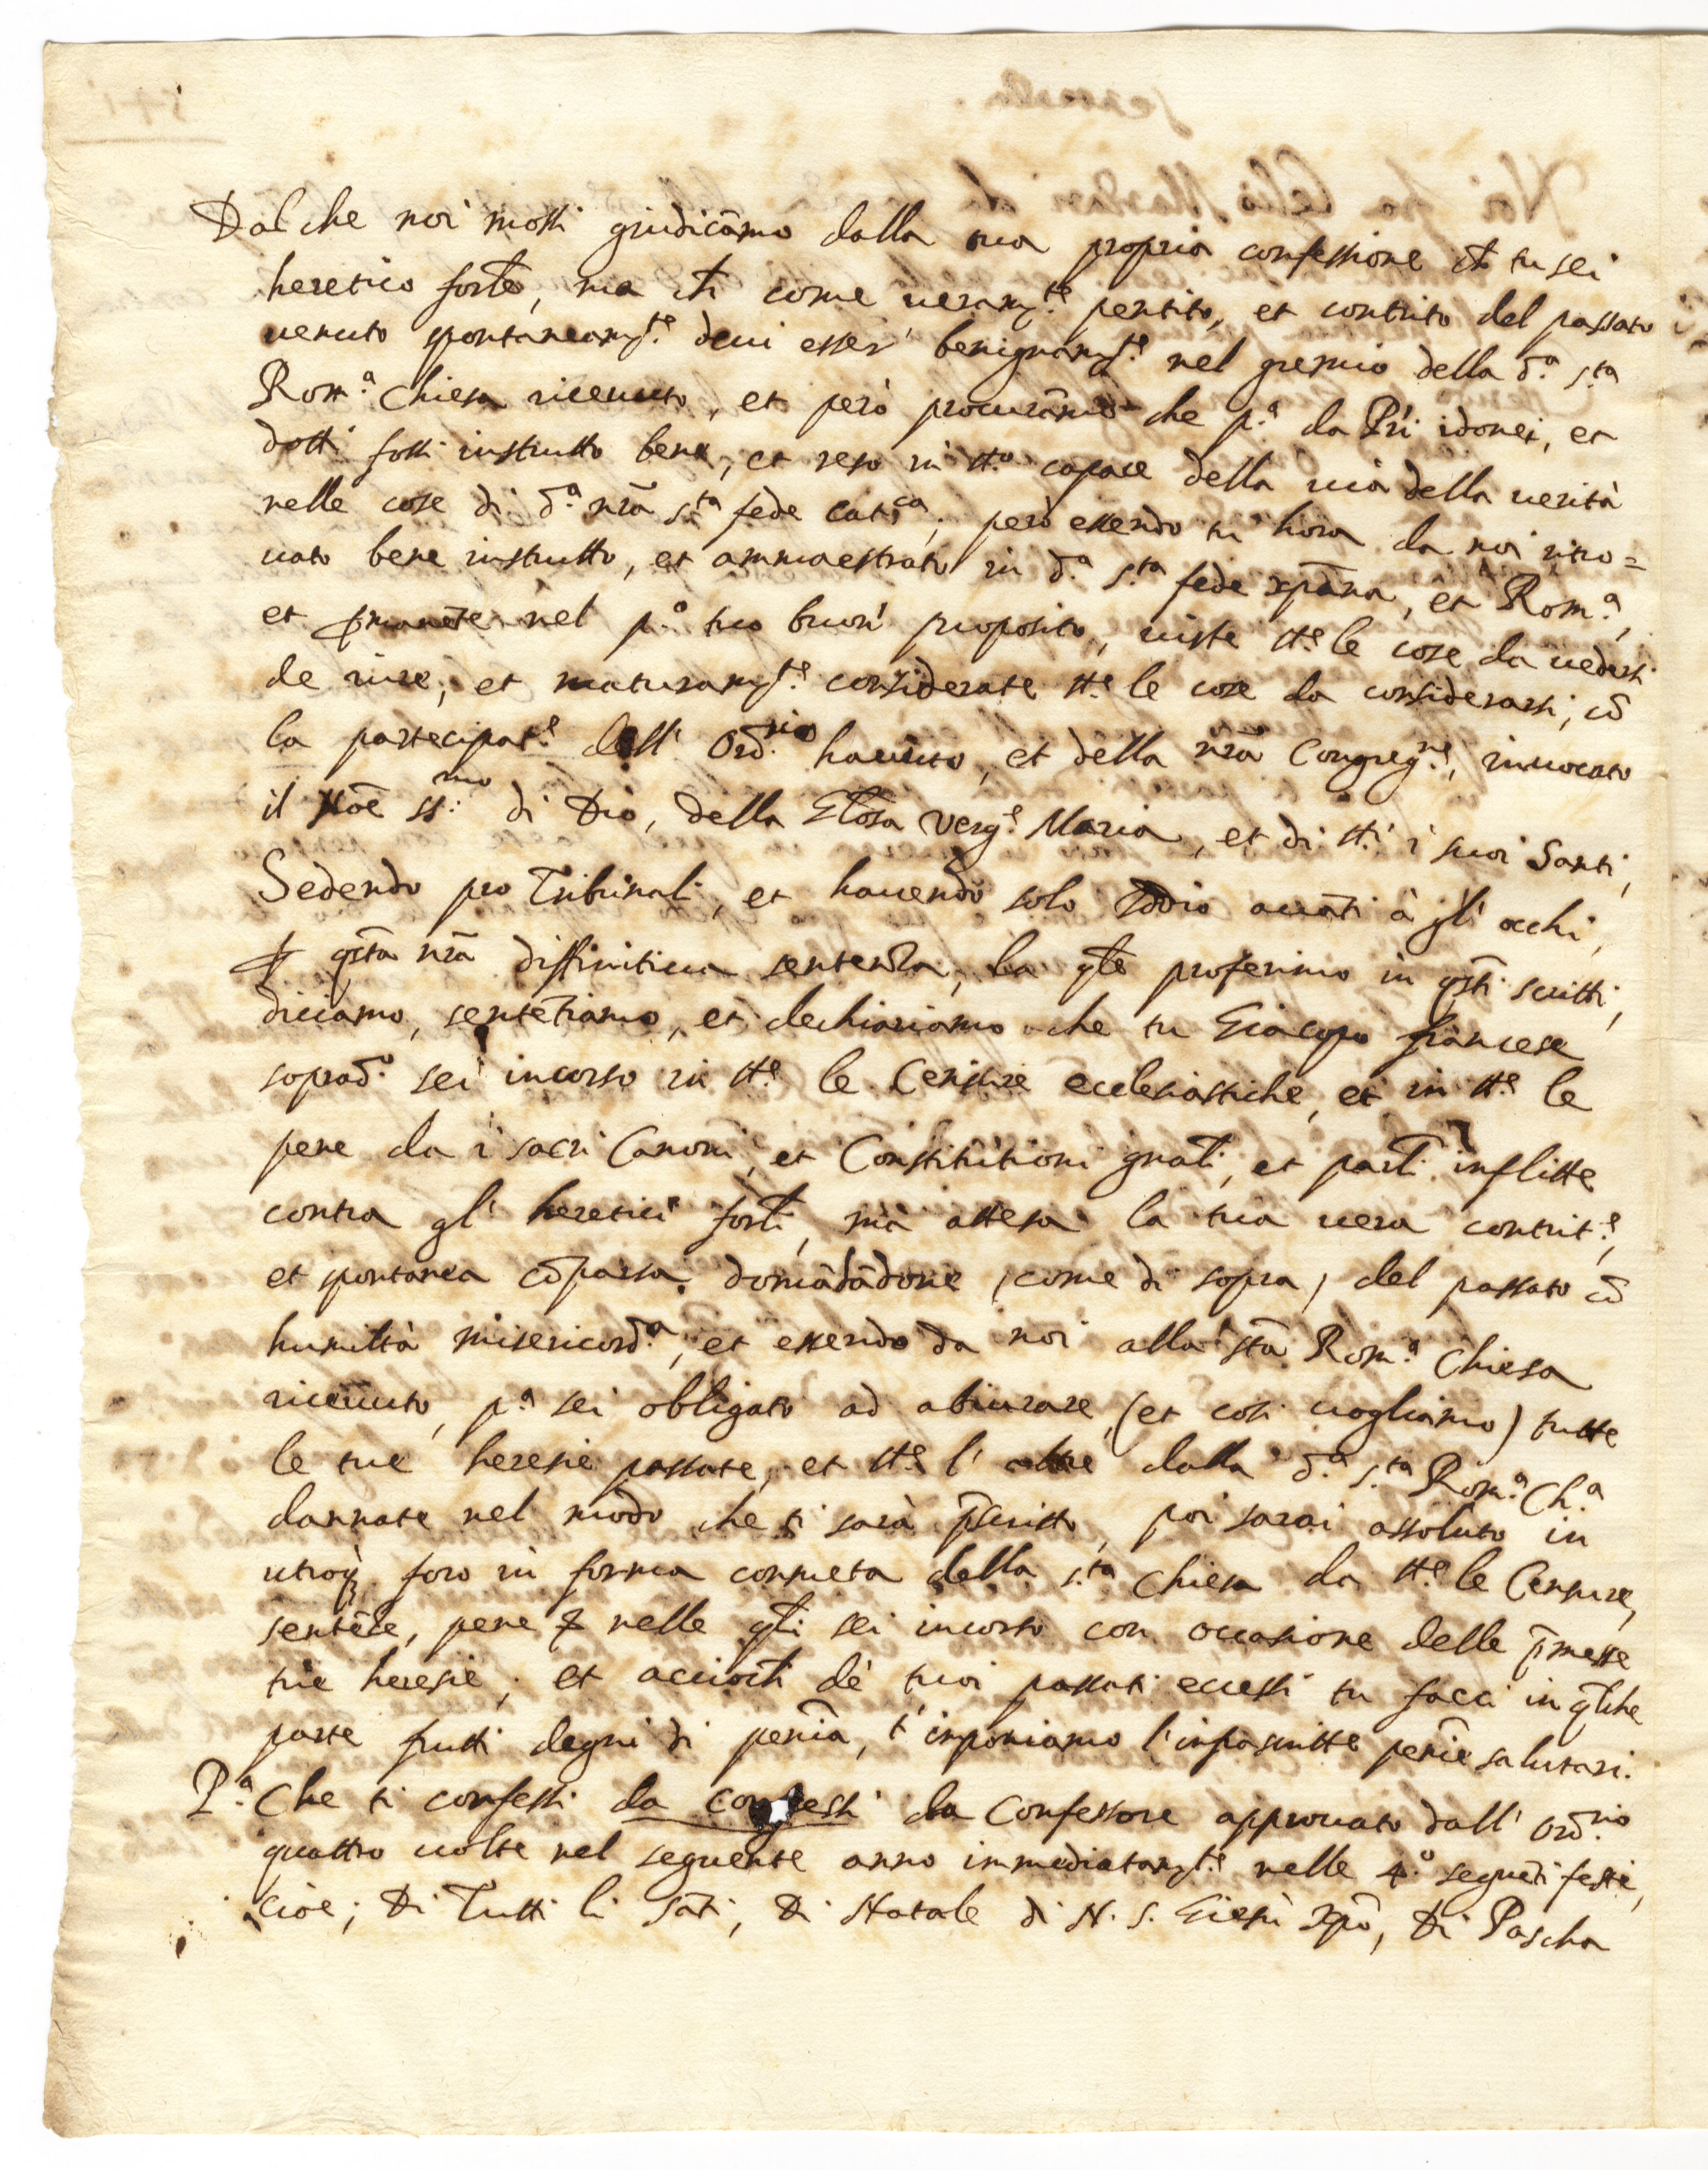 Dal che noi mossi giudicāmo dalla tua propria confessione ch̄ tu sei
heretico forłe, ma ch̄ come ueram.te pentito, et contrito del passato
uenuto spontaneam.te deui esser benignam.te nel gremio della d.a s.ta
Rom.a Chiesa riceuuto, et però procurāmo che p.a da P̄ri idonei, et
dotti fossi instrutto bene, et reso in tt.o capace della uia della uerità
nelle cose di d.a nr̄a s.ta fede catt.ca; però essendo tu hora da noi ritro=
uato bene instrutto, et ammaestrato in d.a s.ta fede xp̄ana, et Rom.a,
et ꝑmanēte nel p.o tuo buon proposito, uiste tt.e le cose da uedersi
de iure, et maturam.te considerate tt.e le cose da considerarsi, cō
la partecipat.e dell' Ord.rio hauuto, et della nr̄a Congreg.ne, inuocato
il Noē ss.mo di Dio, della Głosa Verg.e Maria, et di tt.i i suoi Santi,
Sedendo pro Tribunali, et hauendo solo Iddio auāti à gl' occhi,
ꝑ q̄sta nr̄a diffinitiua sentenza, la q̄le proferimo in q̄sti scritti,
diciamo, sentētiamo, et dechiariamo che tu Giacopo francese
soprad.o sei incorso in tt.e le Censure ecclesiastiche, et in tt.e le
pene da i sacri Canoni, et Constitutioni gnāli, et parłi inflitte
contra gl' heretici forłi, mà attesa la tua uera contrit.e,
et spontanea cōparsa domādādone (come di sopra) del passato cō
humiltà misericord.a, et essendo da noi alla stā Rom.a Chiesa
riceuuto, p.a sei obligato ad abiurare (et cosi uogliamo) tutte
le tue heresie passate, et tt.e l' altre dalla d.a s.ta Rom.a Ch.a
dannate nel modo che ti sarà p̄scritto, poi sarai assoluto in
utroq; foro in forma consueta della s.ta Chiesa da tt.e le Censure,
sentēze, pene & nelle q̄li sei incorso con occasione delle p̄messe
tue heresie; et acciochē dè tuoi passati eccessi tu facci in q̄lche
parte frutti degni di penīa, t' imponiamo l'infrascritte penīe salutari.
P.a Che ti confessi da confessi da Confessore approuato dall' Ord.rio
quattro uolte nel seguente anno immediatam.te nelle 4.o seguēti feste,
cioè; Di Tutti li Sāti, Di Natale di N. S. Giesù Xp̄o, Di Pascha